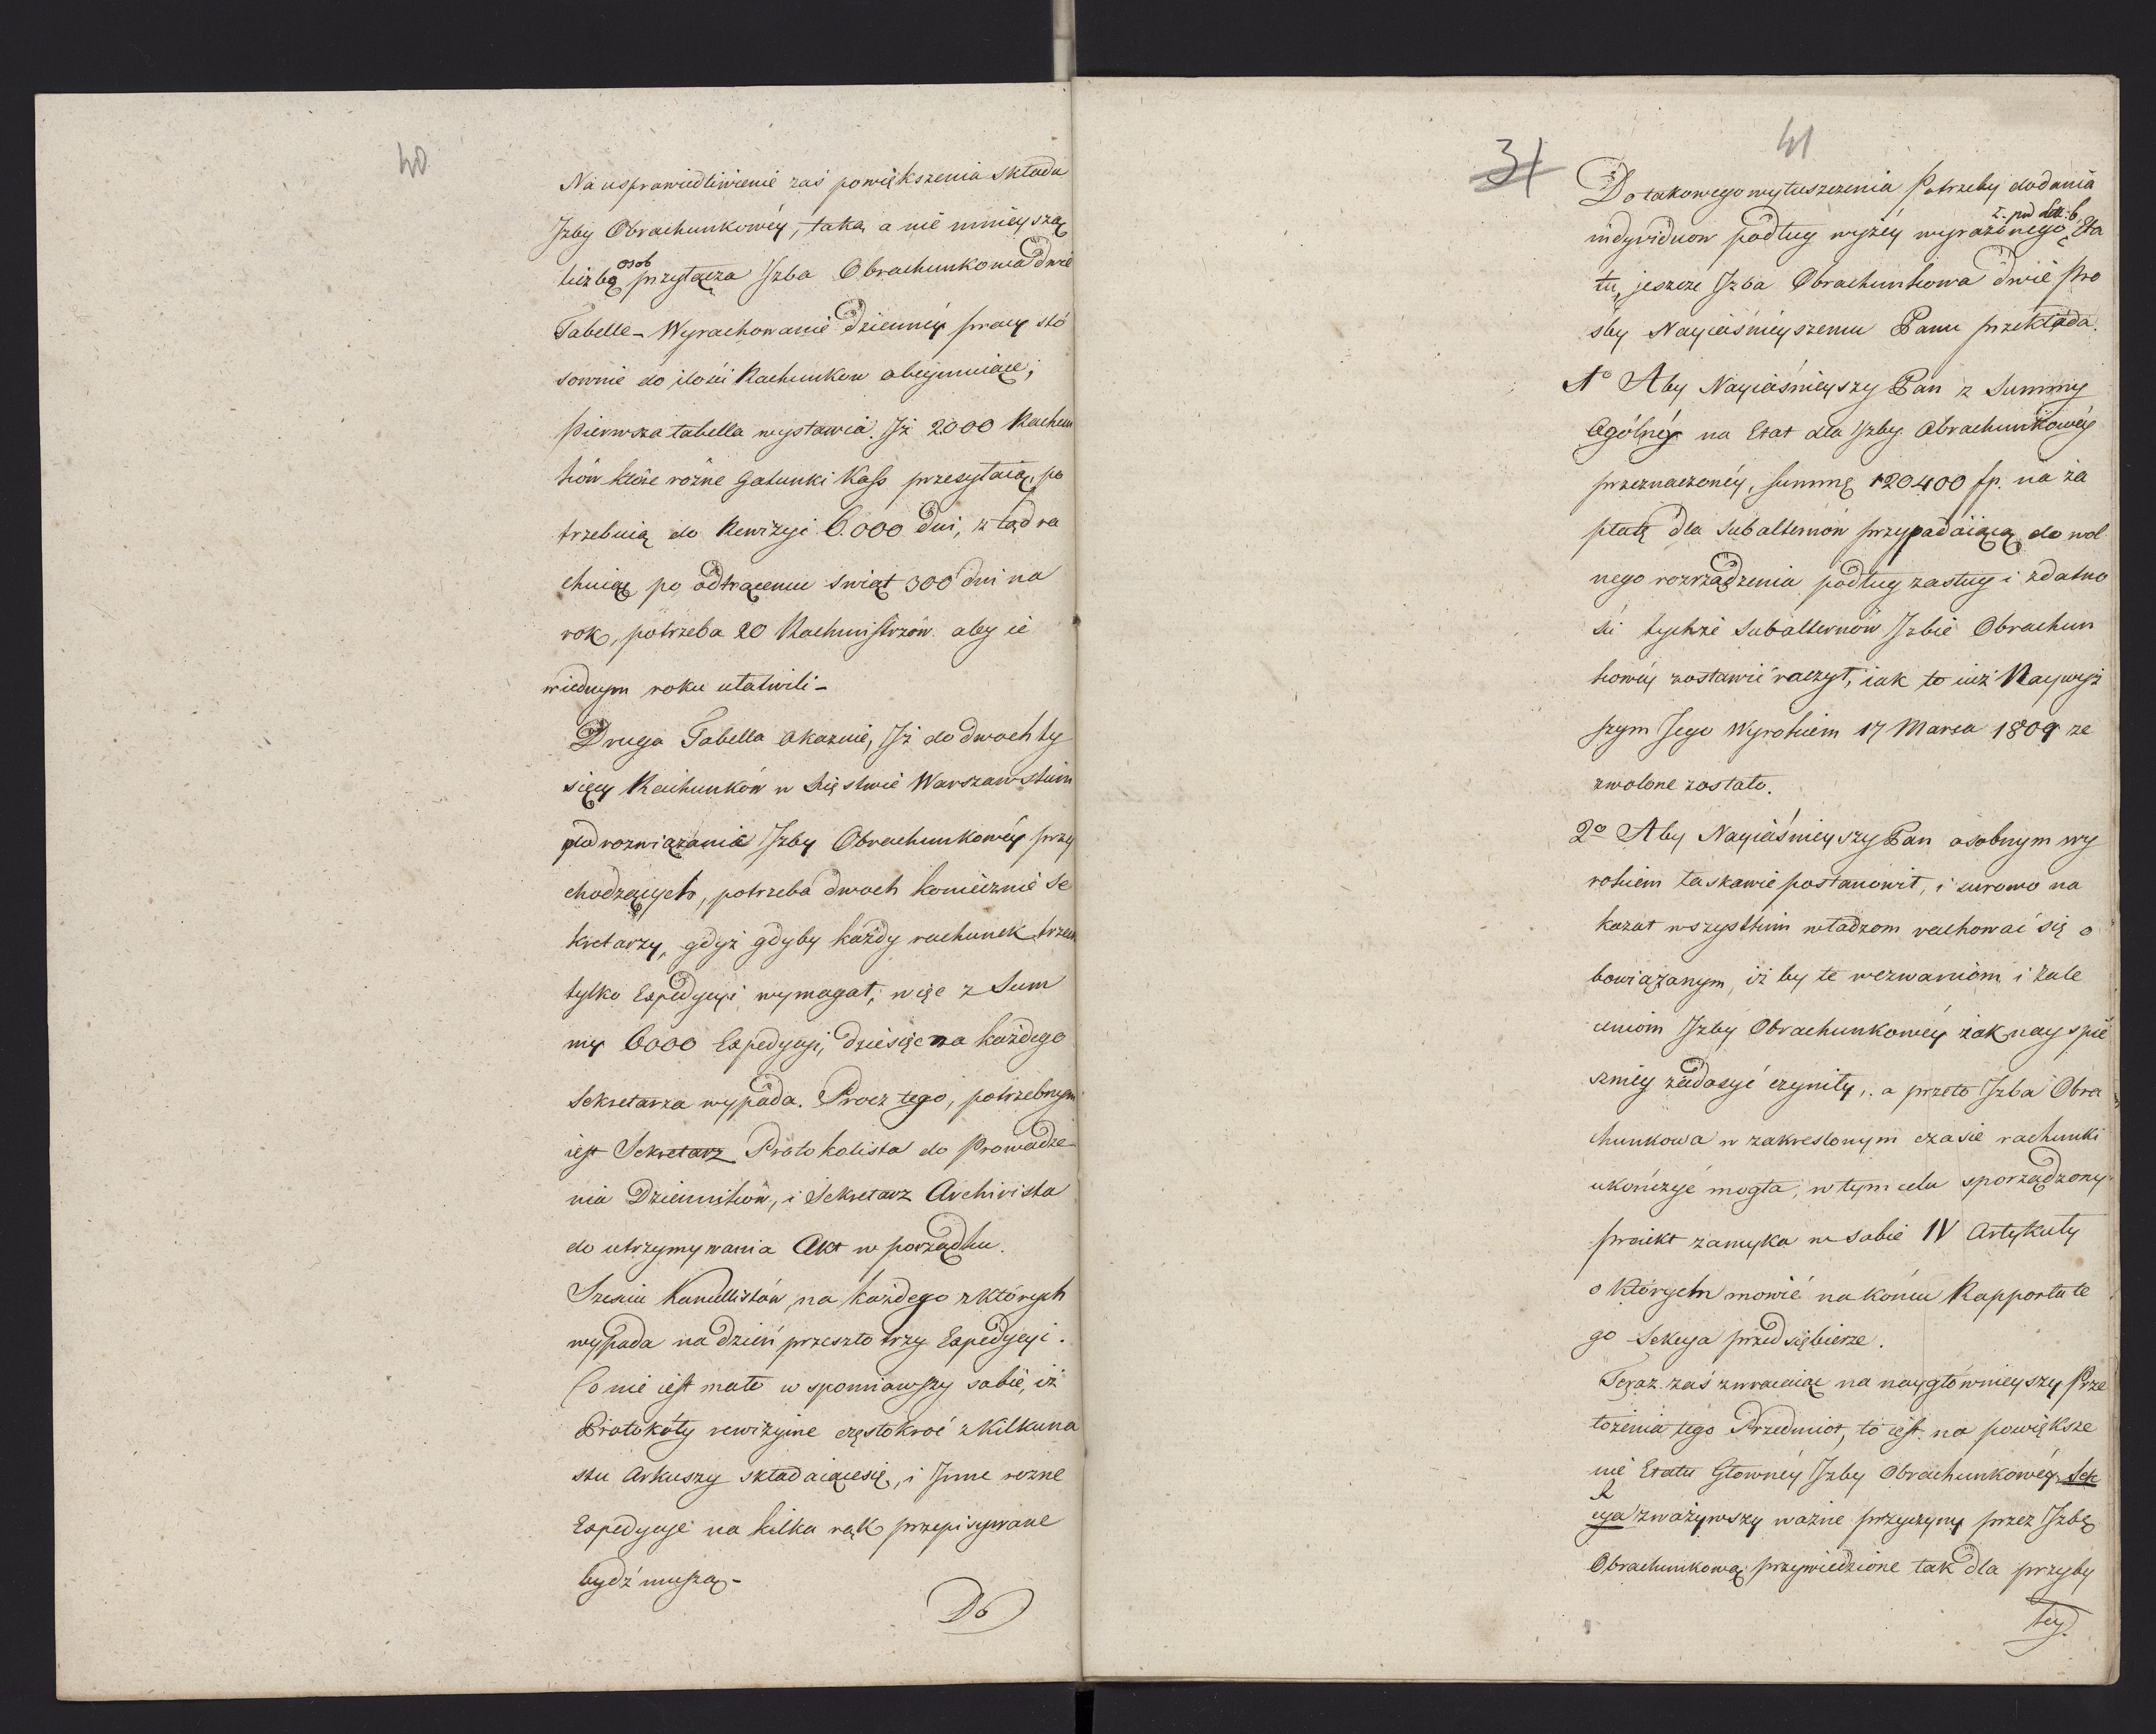 40
Na usprawiedliwienie zaś powiększenia składu
Izby Obrachunkowéy, taką a nie mnieyszą
liczbę osob przyłącza Izba Obrachunkowa dwie
Tabelle - Wyrachowanie dzienney pracy sto
sownie do ilości Rachunkow obeymuiące;
pierwsza tabella wystawia. Iż 2000 Rachun
ków które rożne gatunki Kass przesyłaią, po
trzebuią do Rewizyi 6.000 dni, z tąd ra
chuiąc po odtrąceniu swiąt 300 dni na
rok, potrzeba 20 Rachmistrzów aby ie
w iednym roku ułatwili -
Druga Tabella okazuie, Iż do dwoch ty
sięcy Rachunków w Xięstwie Warszawskim
pod rozwiązanie Izby Obrachunkowéy przy
chodzących, potrzeba dwoch koniecznie Se
kretarzy, gdyż gdyby każdy rachunek trzech
tylko Expedycyi wymagał, więc z Sum
my 6000 Expedycyi, dziesięc na każdego
Sekretarza wypada. Procz tego, potrzebnym
iest Sekretarz Protokolista do Prowadze-
nia Dziennikow, i Sekretarz Archivista
do utrzymywania Akt w porządku.
Sześciu Kancellistów, na każdego z których
wypada na dzień przeszło trzy Expedycyi.
Co nie iest mało wspomiawszy sobie, iż
Protokóły rewizyine częstokroć z Kilkuna
stu Arkuszy składaiącesię, i Inne rożne
Expedycye na kilka rąk przepisywane
bydź muszą -
Do
31
41
Do takowego wyłuszczenia Potrzeby dodania
z. pod Litt: b.
indyviduow podług wyżey wyrażonego Eta
tu, jeszcze Izba Obrachunkowa dwie pro
śby Nayiaśnieyszemu Panu przekłada.
1o Aby Nayiaśnieyszy Pan z Summy
Ogólnéy na Etat dla Izby Obrachunkowéy
przeznaczonéy, summę 120400 fp. na za
płatę dla subalternów przypadaiącą do wol
nego rozrządzenia podług zasług i zdatno
ści tychże subalternów Izbie Obrachun
kowéy zostawić raczył, iak to iuż Naywyż
szym Jego Wyrokiem 17 Marca 1809 ze
zwolone zostało.
2o Aby Nayiaśnieyszy Pan osobnym wy
rokiem łaskawie postanowił, i surowo na
kazał wszystkim władzom rachować się o
bowiązanym, iż by te wezwaniom i zale
ceniom Izby Obrachunkowéy iak nayspie
szniey zadosyć czyniły, a przeto Izba Obra
chunkowa w zakreslonym czasie rachunki
ukończyć mogła, w tym celu sporządzony
proiekt zamyka w sobie IV Artykuły
o których mowić na końcu Rapportu te
go Sekcya przedsiębierze.
Teraz zaś zwracaiąc na naygłownieyszy Prze
łożenia tego Przedmiot, to iest na powiększe
nie Etatu Głowney Izby Obrachunkowéy, Sek
cya zważywszy ważne przyczyny przez Izbę
Obrachunkową przywiedzione tak dla przyby
łey